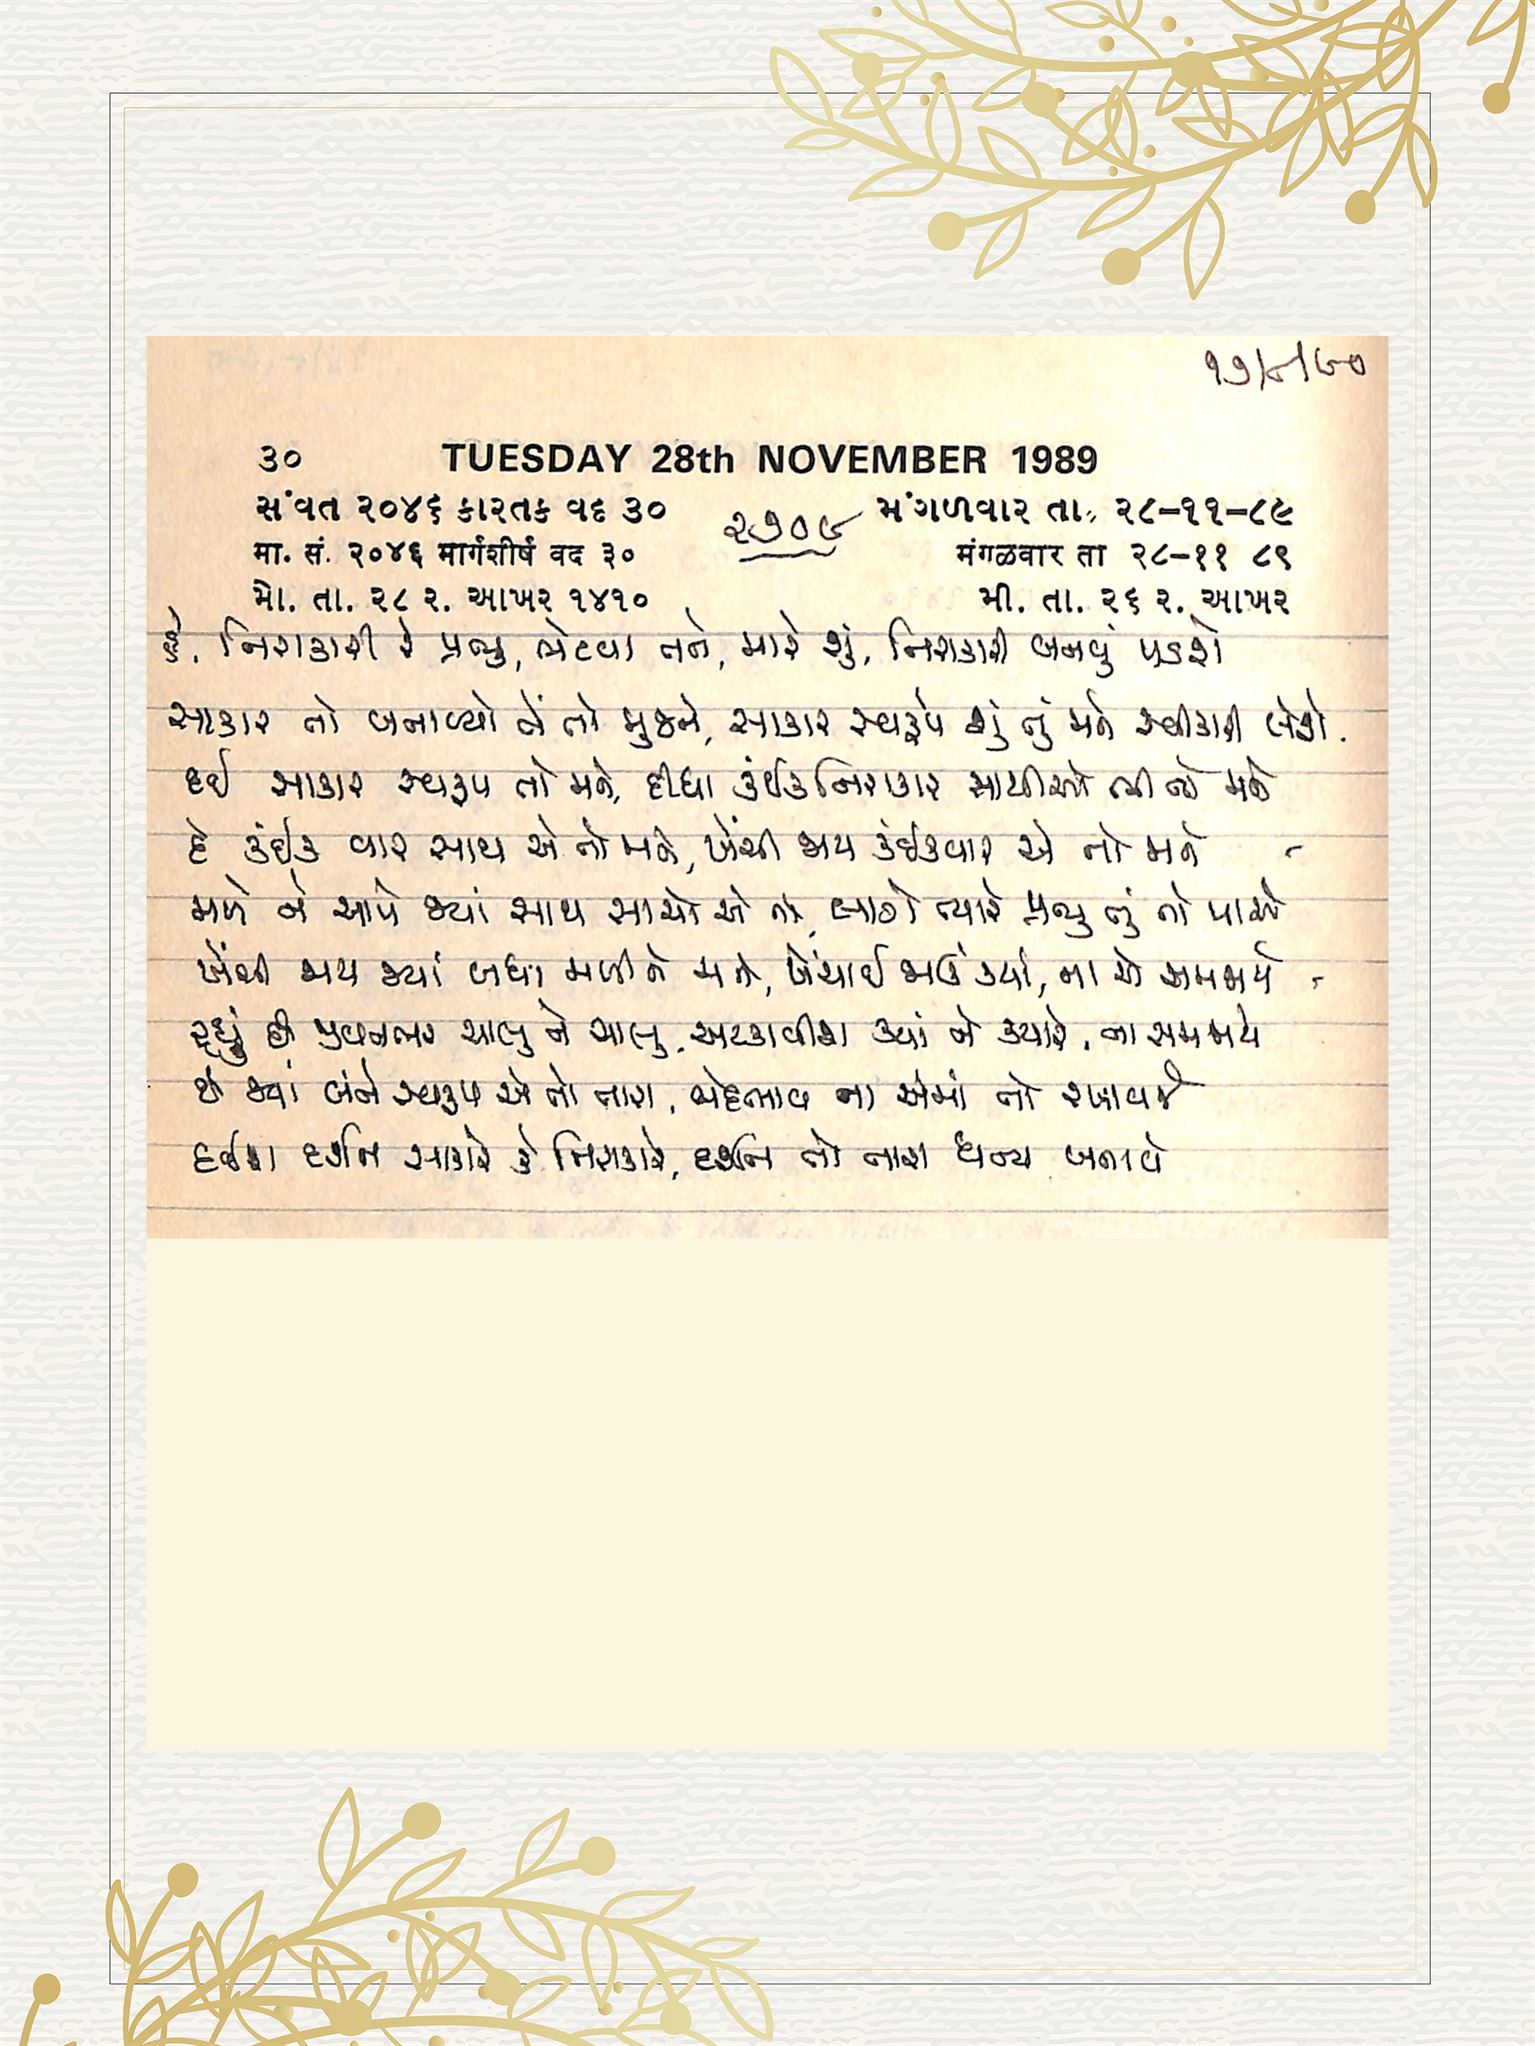 ૧૭/૮/૯૦
૩૦ TUESDAY 28th NOVEMBER 1989
સંવત ૨૦૪૬ કારતક વદ ૩૦ ૨૭૦૯ મંગળવાર તા. ૨૮-૧૧-૮૯
मा. सं. २०४६ मार्गशीर्ष वद ३० मंगळवार ता २८-११ ८९
મો. તા. ૨૮ ર. આખર ૧૪૧૦ મી. તા. ૨૬ ર. આખર
હે, નિરાકારી રે પ્રભુ, ભેટવા તને, મારે શું, નિરાકારી બનવું પડશે
સાકાર તો બનાવ્યો તેં તો મુજને, સાકાર સ્વરૂપે શું તું મને સ્વીકારી લેશે.
દઈ સાકાર સ્વરૂપ તો મને, દીધા કંઈક નિરાકાર સાથીઓ બીજે મને
દે કંઈક વાર સાથ એ તો મને, ખેંચી જાય કંઈકવાર એ તો મને -
મળે ને આપે જ્યાં સાથ સાચો એ તો, લાગે ત્યારે પ્રભુ તું તો પાસે
ખેંચી જાય જ્યાં બધા મળીને મને, ખેંચાઈ જાઉં ક્યાં, ના એ સમજાયે -
રહ્યું છે જીવનભર ચાલુ ને ચાલુ, અટકાવીશ ક્યાં ને ક્યારે, ના સમજાયે
છે જ્યાં બંને સ્વરૂપ એ તો તારા, ભેદભાવ ના એમાં તો રખાવજે
દર્શન સાકારે કે નિરાકારે, દર્શન તો તારા ધન્ય બનાવે